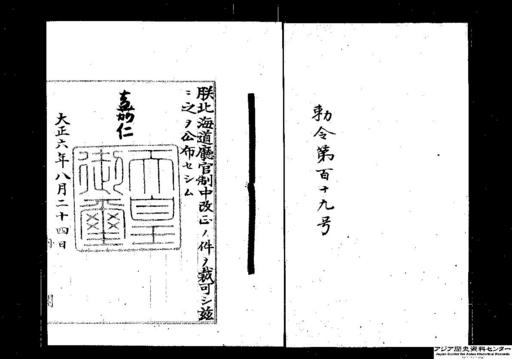 勅令第百十九号
朕北海道廳官制中改正ノ件ヲ裁可シ茲
ニ之ヲ公布セシム
嘉仁
天皇
御璽
大正六年八月二十四日
内閣
アジア歴史資料センター
Japan Center for Asian Historical Records